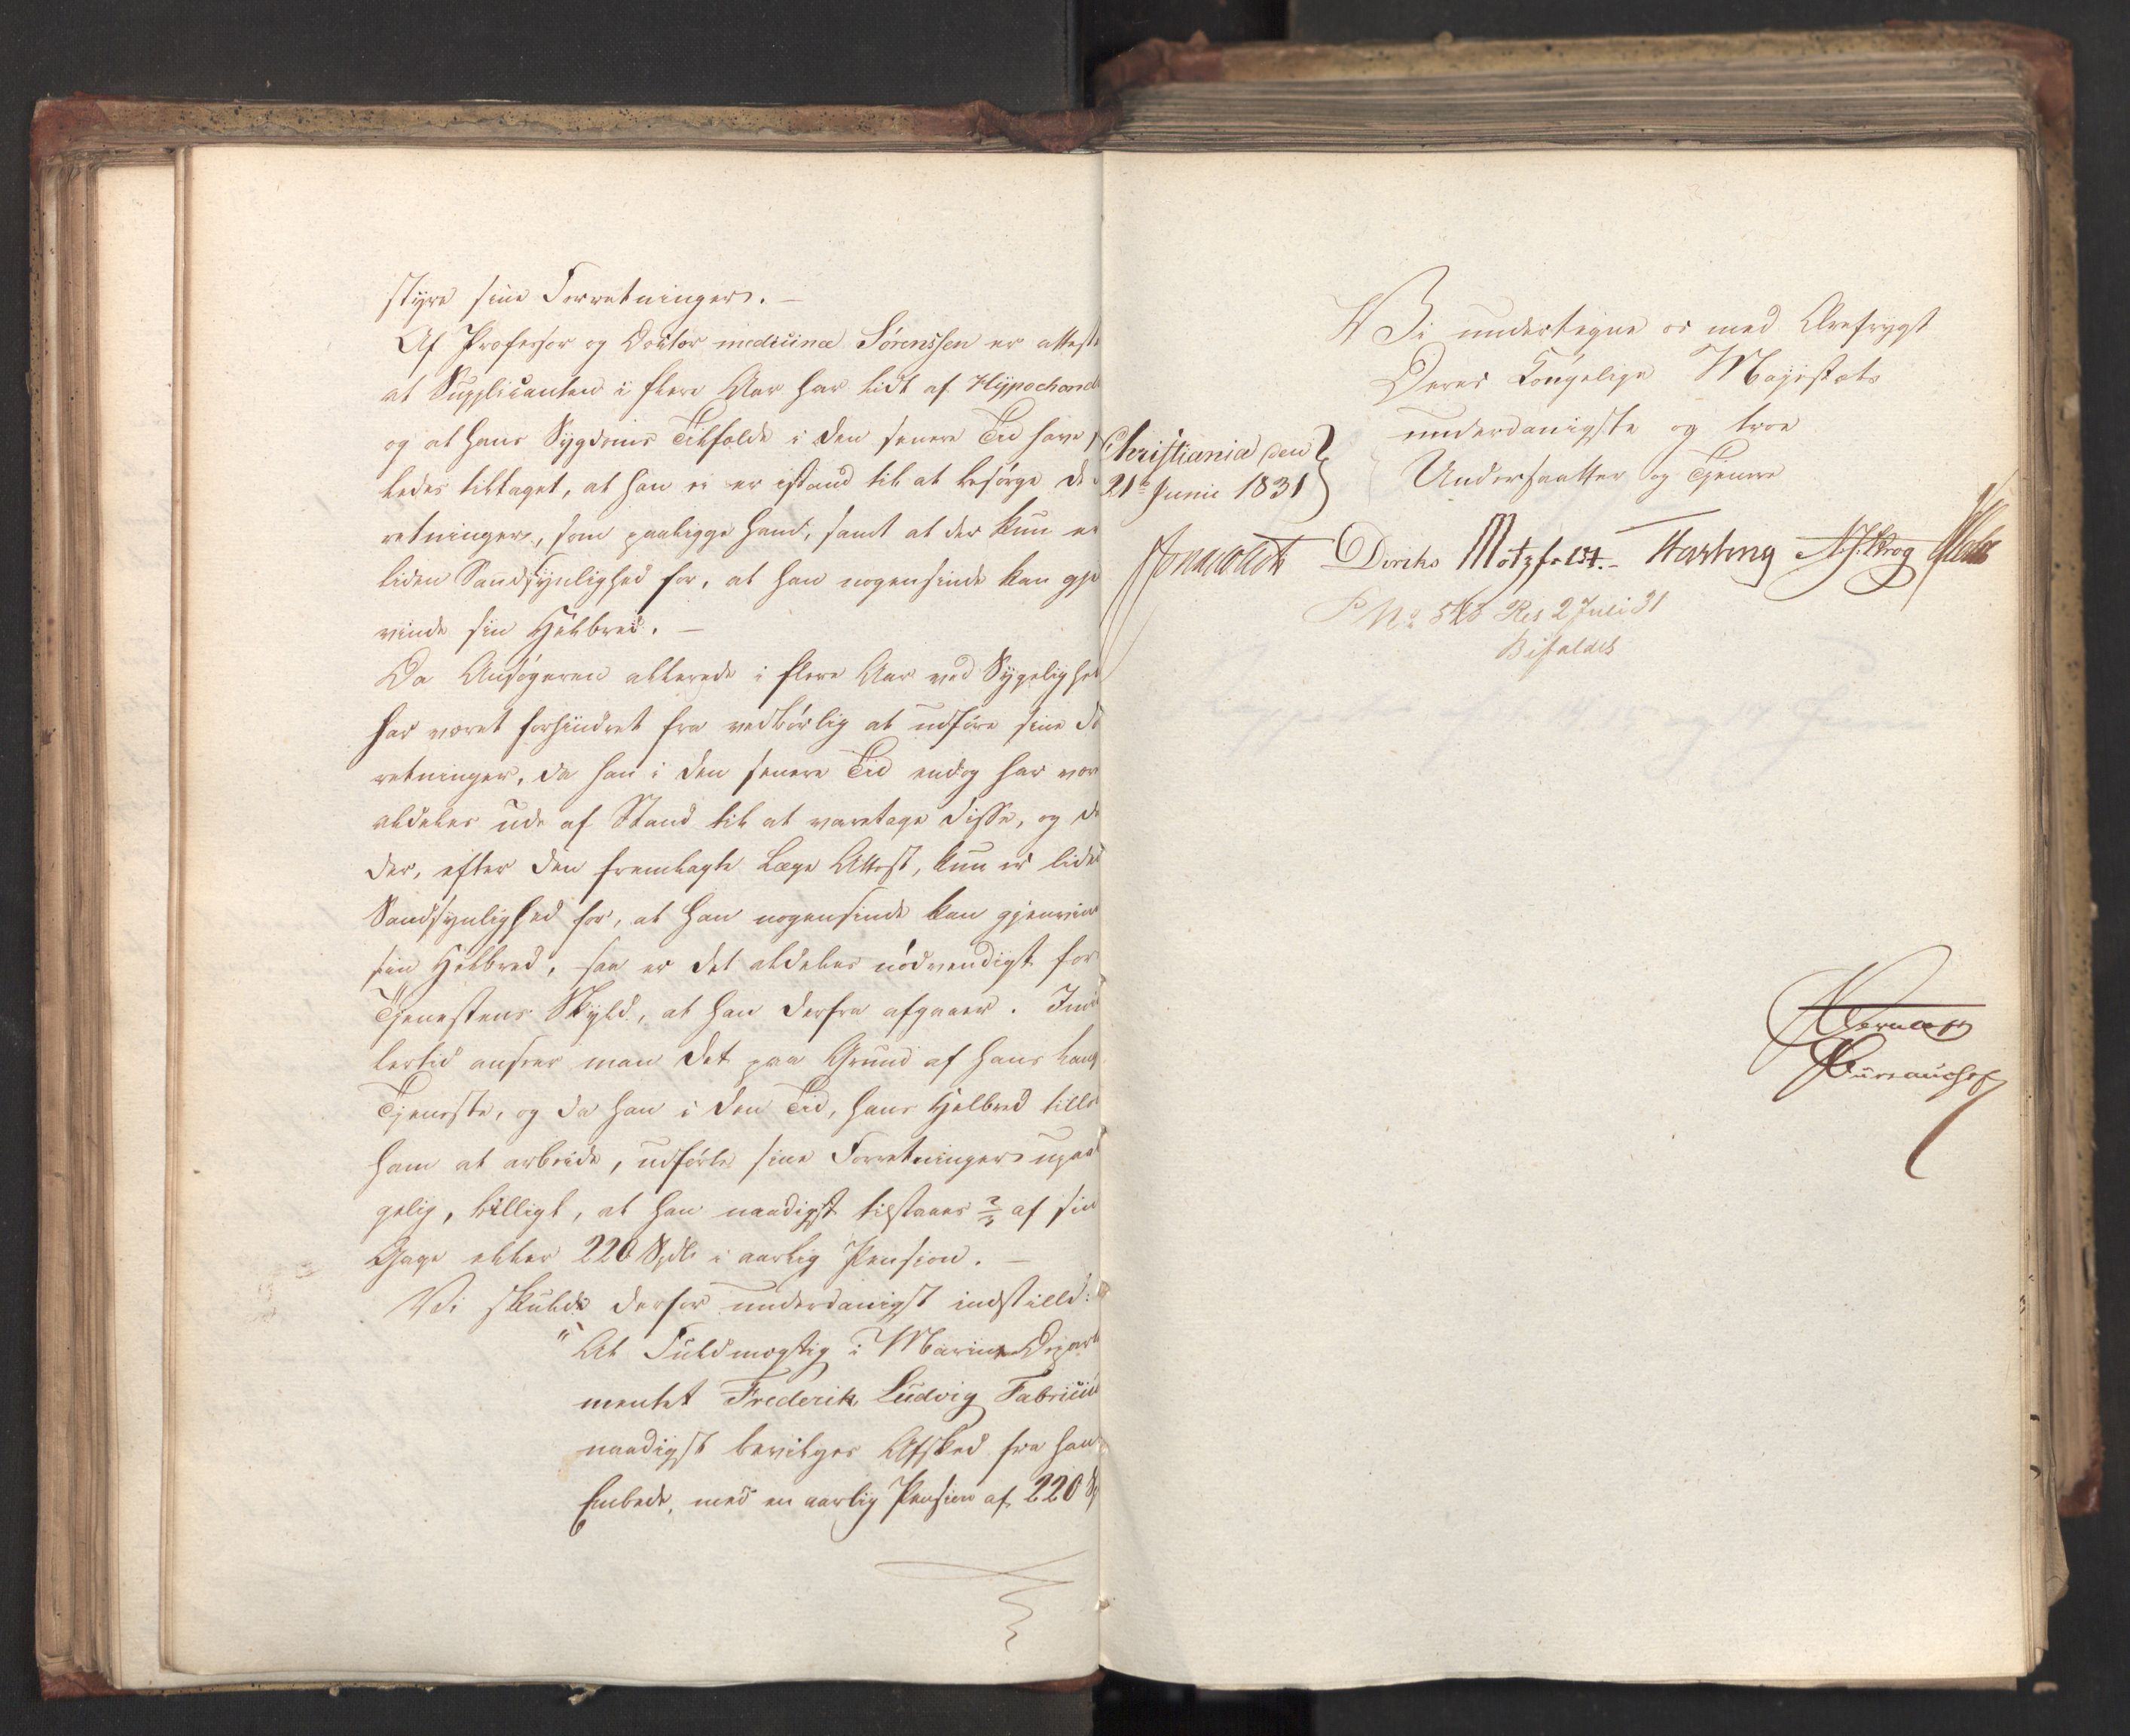 styre sine Forretninger. —
Af Professor og Doctor medicinæ Sørenssen er atteste
at Supplicanten i flere Aar har lidt af Hypochond
og at hans Sygdoms Tilfælde i den senere Tid have
ledes tiltaget, at han ei er istand til at besørge de
retninger, som paaligge ham, samt at der kun er
liden Sandsynlighed for, at han nogensinde kan gje
vinde sin Helbred. —
Da Ansøgeren allerede i flere Aar ved Sygelighed
har været forhindret fra vedbørlig at udføre sine Fo
retninger, da han i den senere Tid endog har være
aldeles ude af Stand til at varetage disse, og da
der, efter den fremlagte Læge Attest, kun er liden
Sandsynlighed for, at han nogensinde kan gjenvin
sin Helbred, saa er det aldeles nødvendigt for
Tjenestens Skyld, at han derfra afgaaer. Imid
lertid anseer man det paa Grund af hans lang
Tjeneste, og da han i den Tid, hans Helbred tillod
ham at arbeide, udførte sine Forretninger upaa
gelig, billigt, at han naadigst tilstaaes 2/3 af sin
Gage eller 220 Spdlr i aarlig Pension. —
Vi skulde derfor underdanigst indstille:
"At Fuldmægtig i Marine Depart
mentet Frederik Ludvig Fabriciu
naadigst bevilges Afsked fra han
Embede, med en aarlig Pension af 220 Sp
Vi undertegne os med Ærefrygt
Deres Kongelige Majestæts
underdanigste og troe
Undersaatter og Tjenere
Christiania den
21de Junii 1831
Diriks Motzfeldt. Harbing Krog
No Res 2 Juli 31
Bifaldes
Bureauchef